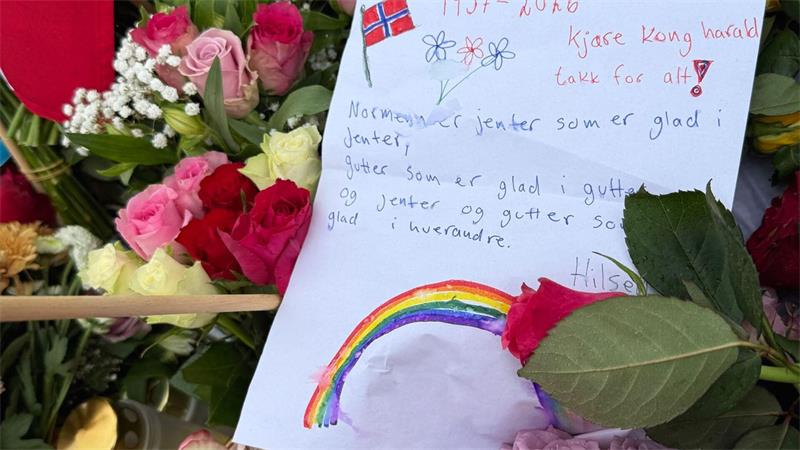 1937-2026
Kjære Kong harald
takk for alt!
Normenn er jenter som er glad i
jenter,
gutter som er glad i gutter
og jenter og gutter som
glad i hverandre.
Hilsen